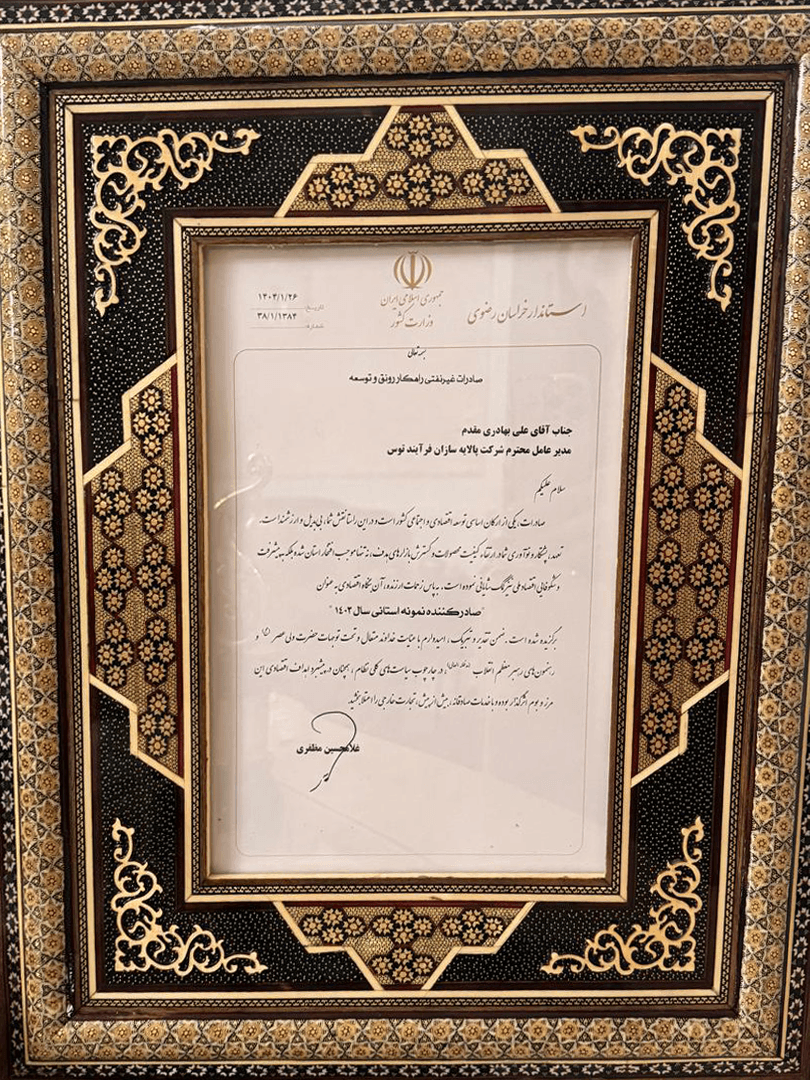 جمهوری اسلامی ایران
وزارت کشور
استاندار خراسان رضوی
تاریخ: ۱۴۰۴/۱/۲۶
شماره: ۳۸/۱/۱۳۸۴
بسمه تعالی
صادرات غیرنفتی راهکار رونق و توسعه
جناب آقای علی بهادری مقدم
مدیر عامل محترم شرکت پالایه سازان فرآیند توس
سلام علیکم
صادرات، یکی از ارکان اساسی توسعه اقتصادی و اجتماعی کشور است و در این راستا نقش شما، بی‌بدیل و ارزشمند است.
تعهد، پشتکار و نوآوری شما در ارتقاء کیفیت محصولات و گسترش بازارهای هدف، نه تنها موجب افتخار استان شده بلکه به پیشرفت
و شکوفایی اقتصاد ملی نیز کمک شایانی نموده است. به پاس زحمات ارزنده، آن بنگاه اقتصادی به عنوان
"صادرکننده نمونه استانی سال ۱۴۰۳"
برگزیده شده است. ضمن تقدیر و تبریک، امیدوارم با عنایت خداوند متعال و تحت توجهات حضرت ولی عصر (عج) و
رهنمون‌های رهبر معظم انقلاب (مدظله العالی)، در چارچوب سیاست‌های کلی نظام، همچنان در پیشبرد اهداف اقتصادی این
مرز و بوم اثرگذار بوده و با خدمات صادقانه، بیش از پیش، تجارت خارجی را اعتلا بخشید
غلامحسین مظفری